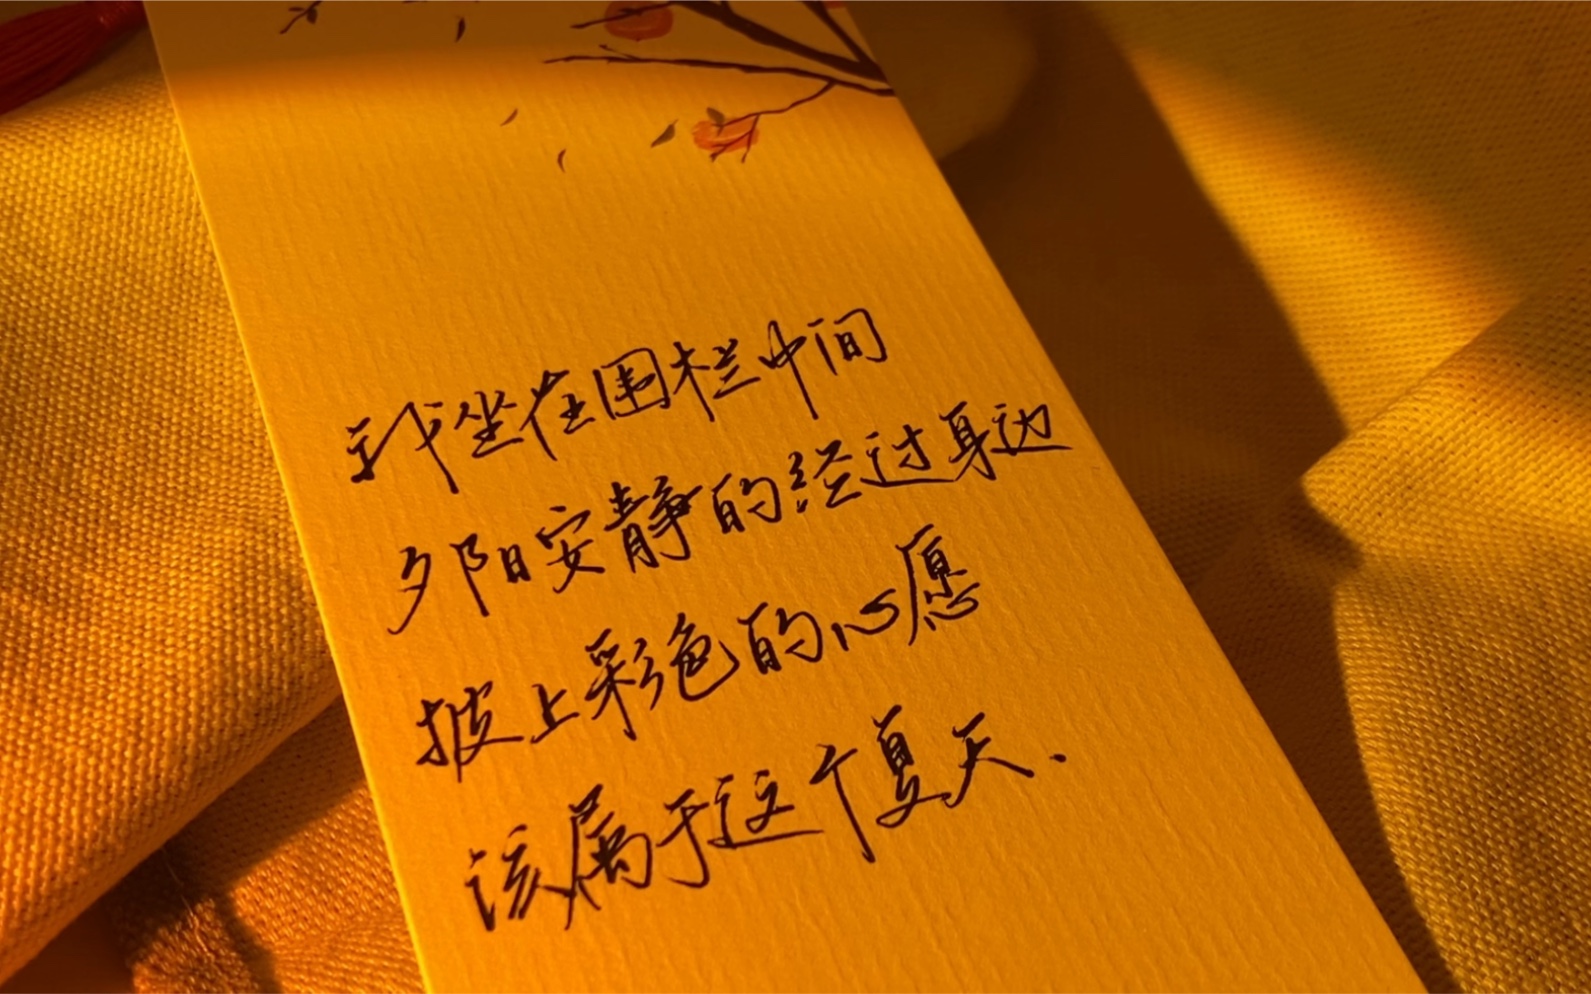 我坐在围栏中间
夕阳安静的经过身边
披上彩色的心愿
该属于这个夏天.